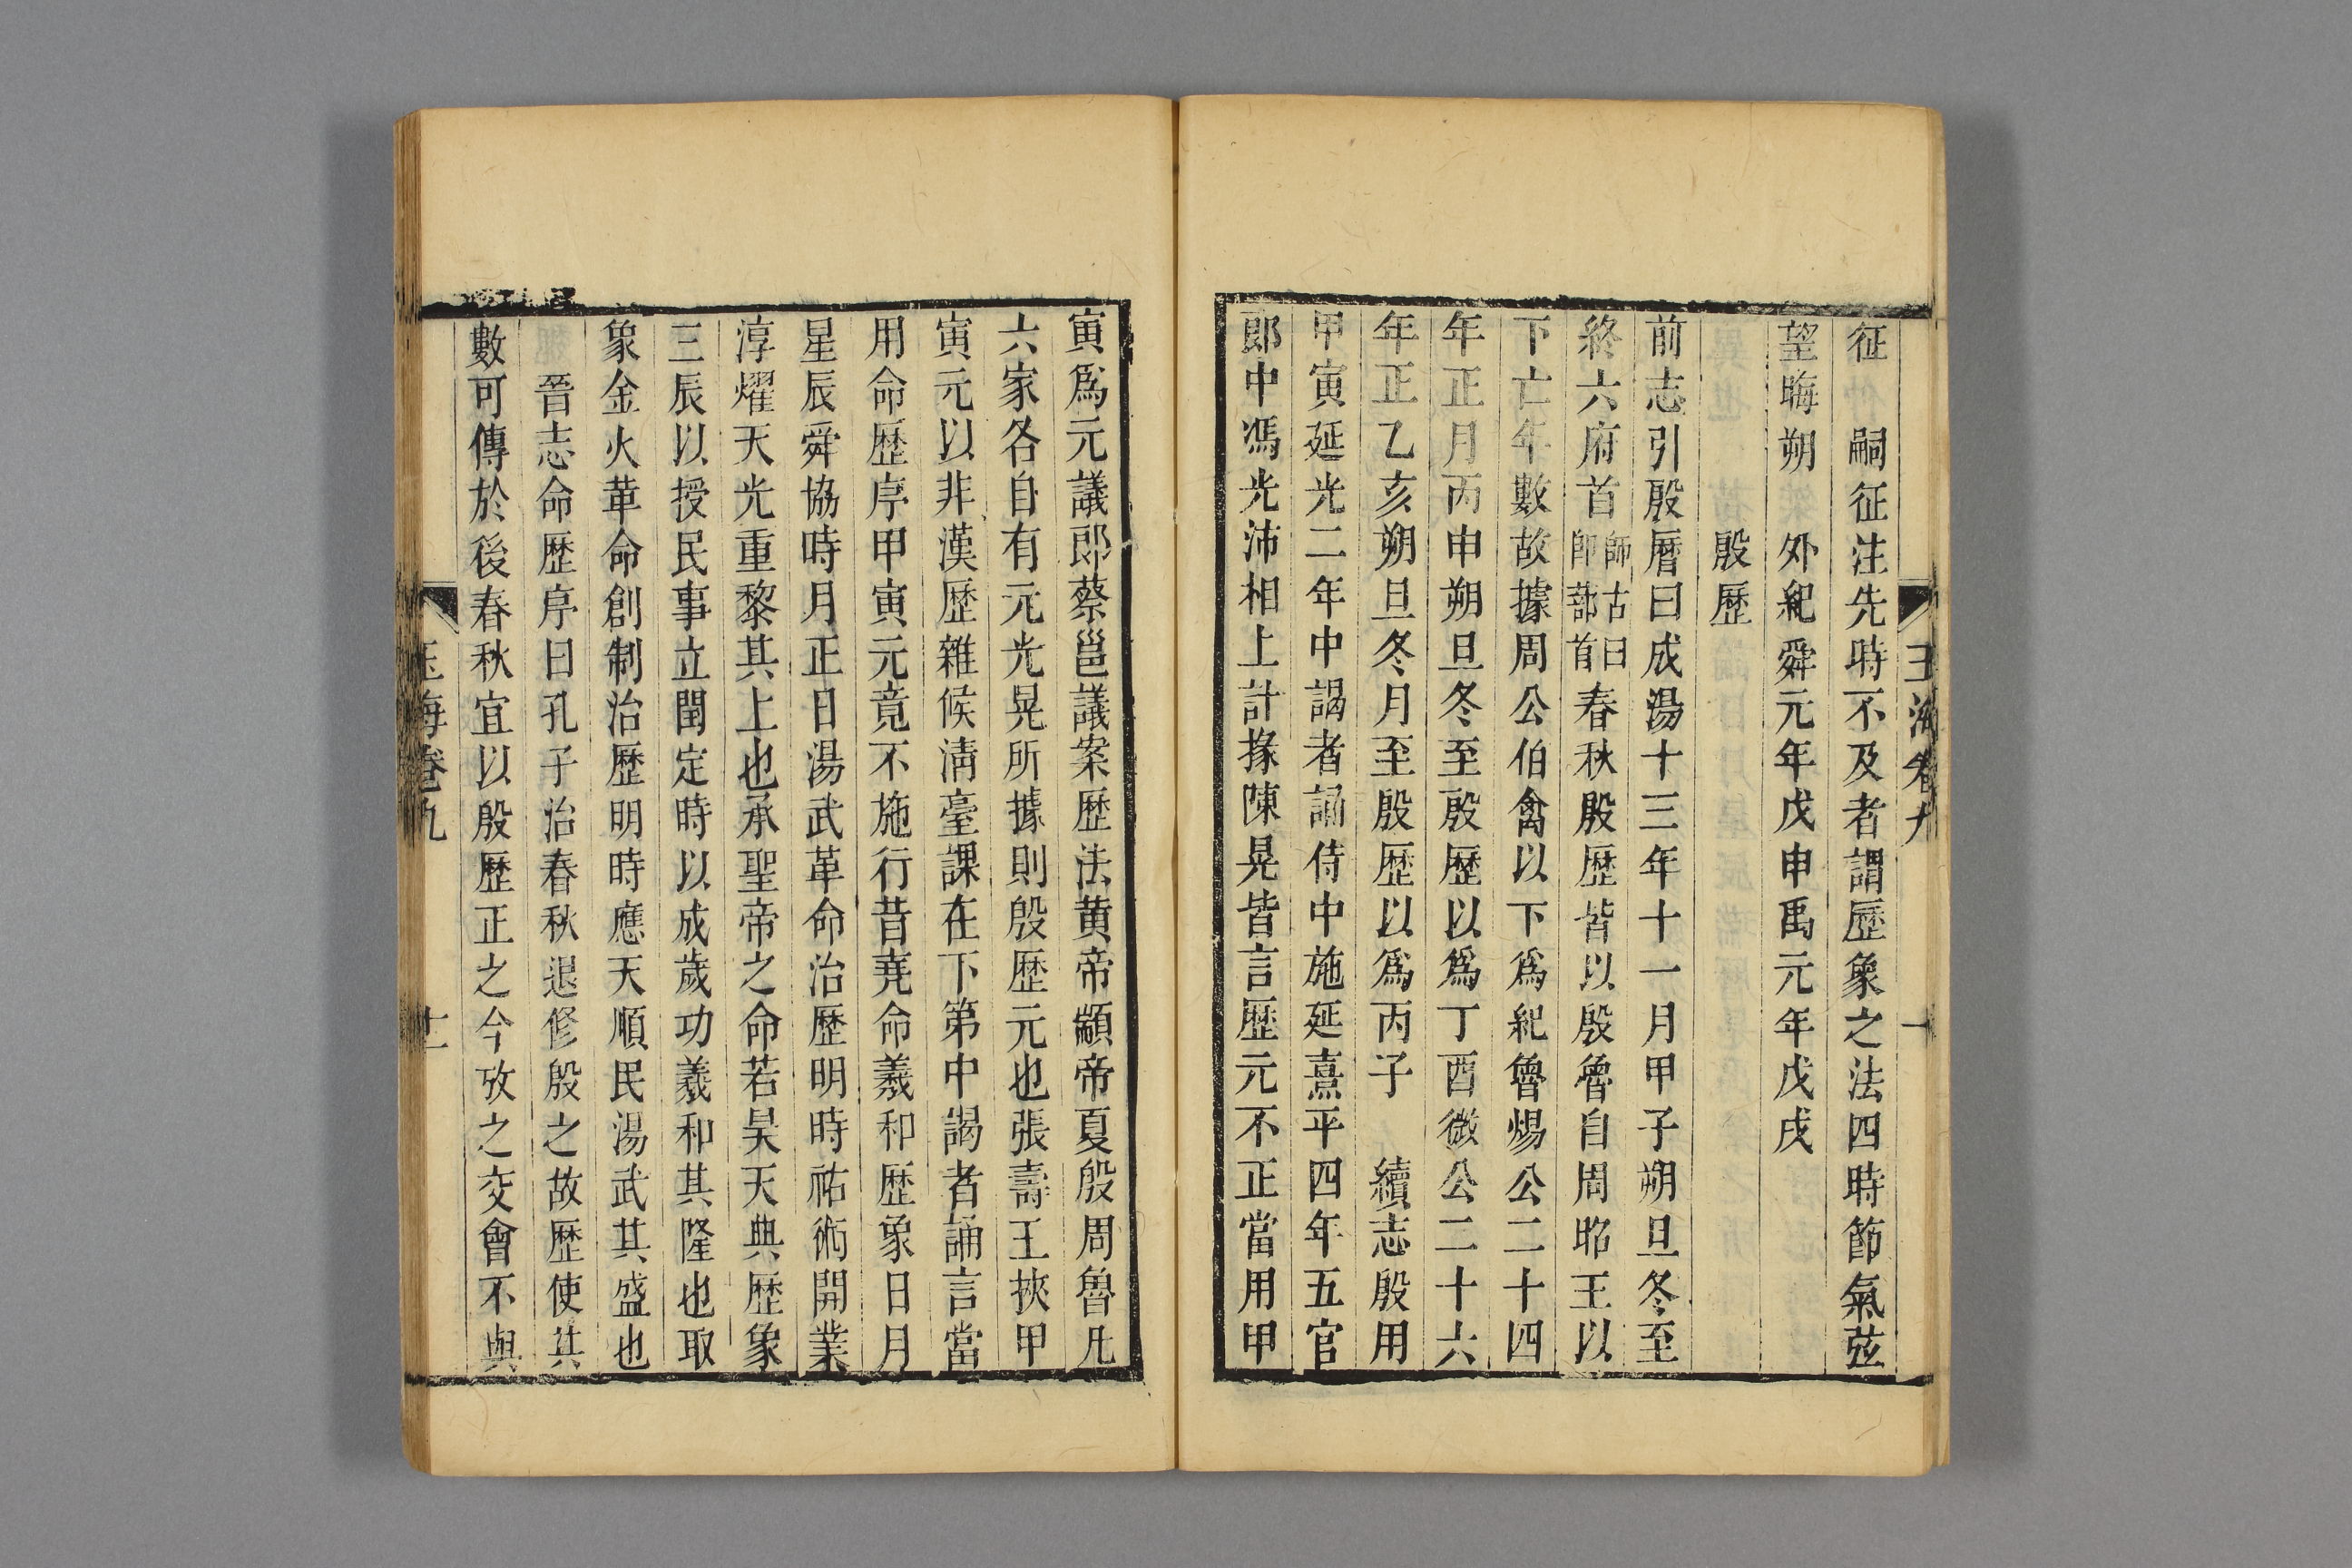 征　嗣征注先時不及者謂歷象之法四時節氣弦
望晦朔　外紀舜元年戊申禹元年戊戌
殷歷
前志引殷曆曰成湯十三年十一月甲子朔旦冬至
終六府首師古曰卽蔀首春秋殷歷皆以殷魯自周昭王以
下亡年數故據周公伯禽以下爲紀魯煬公二十四
年正月丙申朔旦冬至殷歷以爲丁酉微公二十六
年正乙亥朔旦冬月至殷歷以爲丙子　續志殷用
甲寅延光二年中謁者誦侍中施延熹平四年五官
郎中馮光沛相上計掾陳晃皆言歷元不正當用甲
寅爲元議郎蔡邕議案歷法黃帝顓帝夏殷周魯凡
六家各自有元光晃所據則殷歷元也張壽王挾甲
寅元以非漢歷雜候淸臺課在下第中謁者誦言當
用命歷序甲寅元竟不施行昔堯命羲和歷象日月
星辰舜協時月正日湯武革命治歷明時祐術開業
淳燿天光重黎其上也承聖帝之命若昊天典歷象
三辰以授民事立閏定時以成歲功羲和其隆也取
象金火革命創制治歷明時應天順民湯武其盛也
晉志命歷序曰孔子治春秋退修殷之故歷使其
數可傳於後春秋宜以殷歷正之今攷之交會不與
玉海卷九